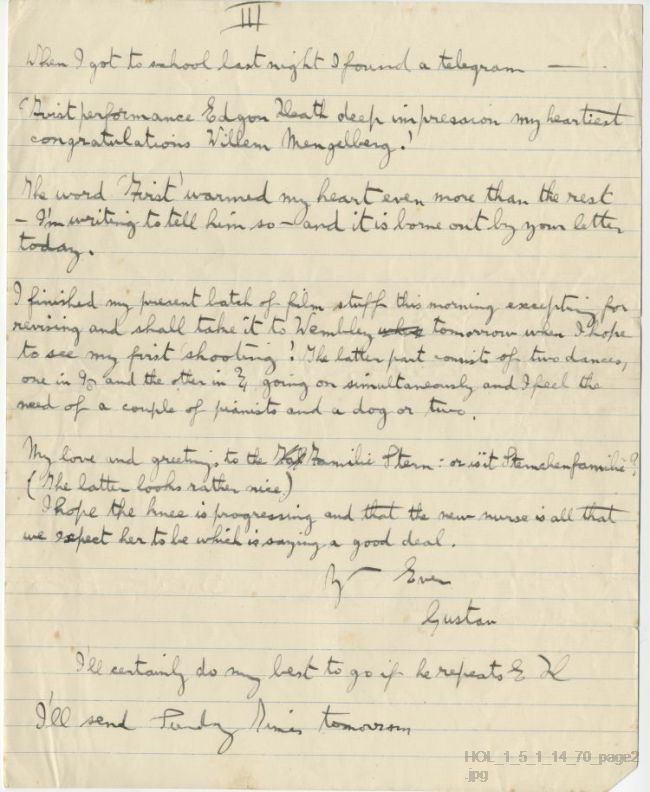 III
When I got to school last night I found a telegram —
'First performance Edgon Heath deep impression my heartiest
congratulations Willem Mengelberg.'
The word 'First' warmed my heart even more than the rest
– I'm writing to tell him so – and it is borne out by your letter
today.
I finished my present batch of film stuff this morning excepting for
revising and shall take it to Wembley tomorrow when I hope
to see my first 'shooting'! The latter part consists of two dances,
one in 9/8 and the other in 3/4 going on simultaneously and I feel the
need of a couple of pianists and a dog or two.
My love and greetings to the Familie Stern : or is it Sternchenfamilie?
(The latter looks rather nice)
I hope the knee is progressing and that the new nurse is all that
we expect her to be which is saying a good deal.
Yr Ever
Gustav
I'll certainly do my best to go if he repeats E H
I'll send Sunday Times tomorrow
HOL_1_5_1_14_70_page2
.jpg